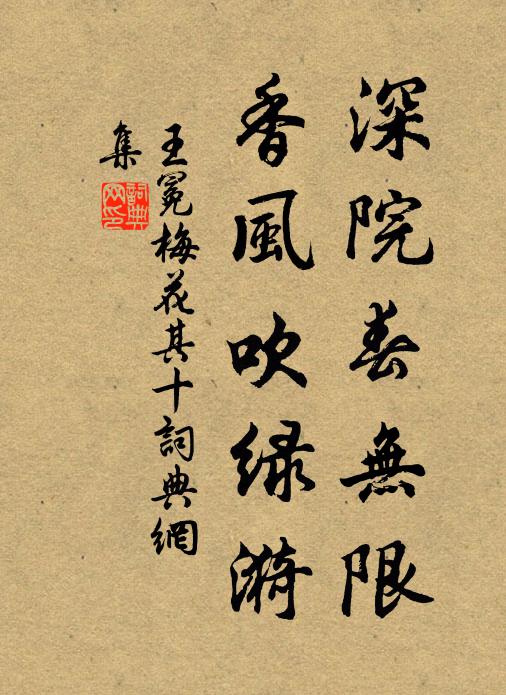 深院春無限
香風吹綠漪
王冕梅花其十詞典網
集
詞典
网印